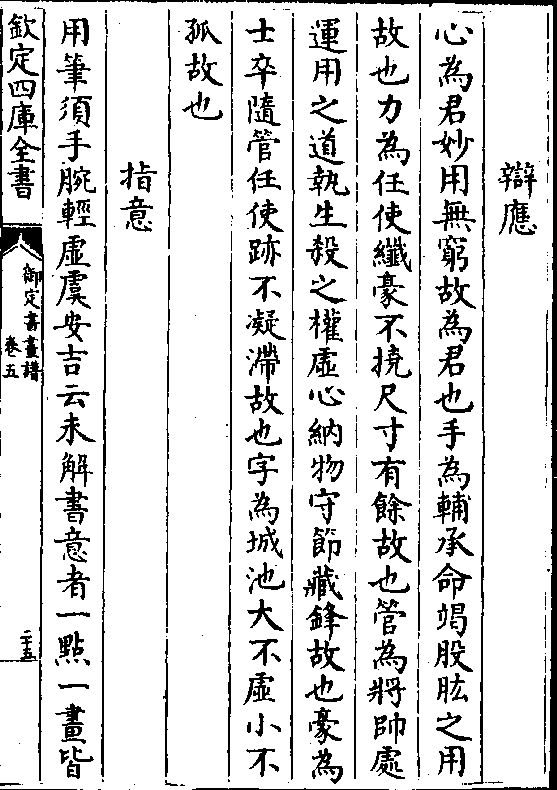 辯應
心為君妙用無窮故為君也手為輔承命竭股肱之用
故也力為任使纖豪不撓尺寸有餘故也管為將帥處
運用之道執生殺之權虛心納物守節藏鋒故也豪為
士卒隨管任使跡不凝滯故也字為城池大不虛小不
孤故也
指意
用筆須手腕輕虛虞安吉云未解書意者一點一畫皆
欽定四庫全書
御定書畫譜
卷五
二十五